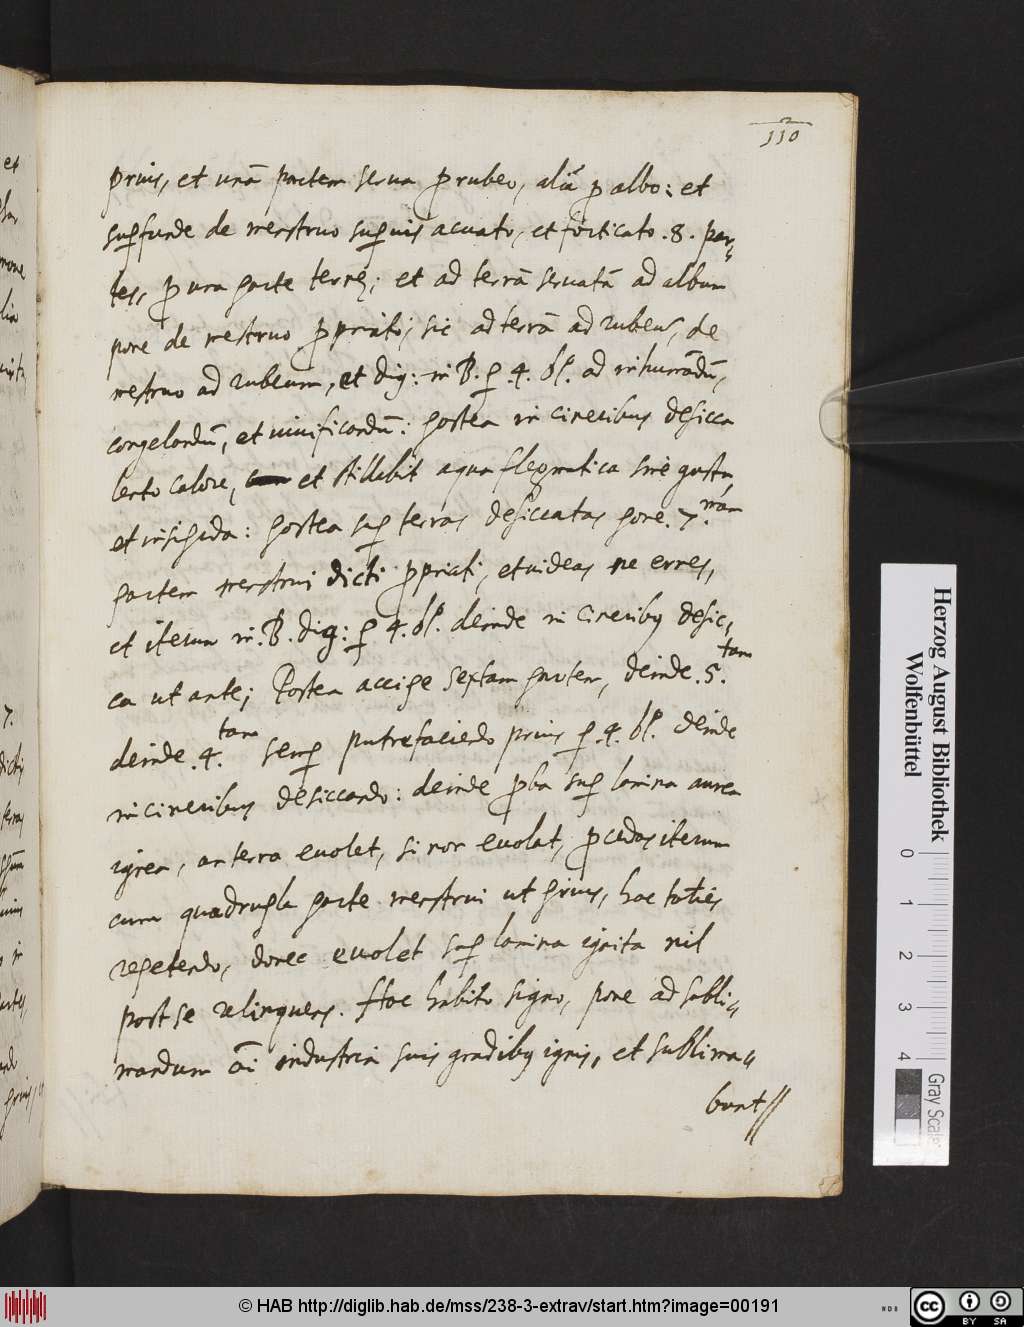 110
prius, et unā partem serua ꝑ rubeo, aliā ꝑ albo: et
suꝑfunde de menstruo suꝑius acuato, et forticato .8. par„
tes, ꝑ una parte terrę; et ad terrā seruatā ad album
pone de mestruo ꝓpriato; sic ad terrā ad rubeū, de
mestruo ad rubeum, et dig: in B. ꝑ .4. dī. ad inhumādū,
congelandū, et uiuificandū: postea in cineribus desicca
lento calore, et stillabit aqua flegmatica sine gustu,
et insipida: postea suꝑ terras desiccatas pone .7.mam
partem menstrui dicti ꝓpriati, et uideas ne erres,
et iterum in .B. dig: ꝑ 4. dī. deinde in cineribus desic,
ca ut ante; Postea accipe sextam partem, deinde .5.tam
deinde .4.tam semꝑ putrefaciendo prius ꝑ .4. dī. deinde
in cineribus desiccando: deinde ꝓba suꝑ lamina aurea
ignea, an terra euolet, si non euolat, ꝓcedas iterum
cum quadrupla parte menstrui ut prius, hoc toties
repetendo, donec euolet suꝑ lamina ignita nil
post se relinquens. Hoc habito signo, pone ad subli„
mandum oī industria suis gradibus ignis, et sublima„
bunt//
Herzog August Bibliothek
Wolfenbüttel
0 1 2 3 4
Gray Scale
© HAB http://diglib.hab.de/mss/238-3-extrav/start.htm?image=00191
cc BY SA